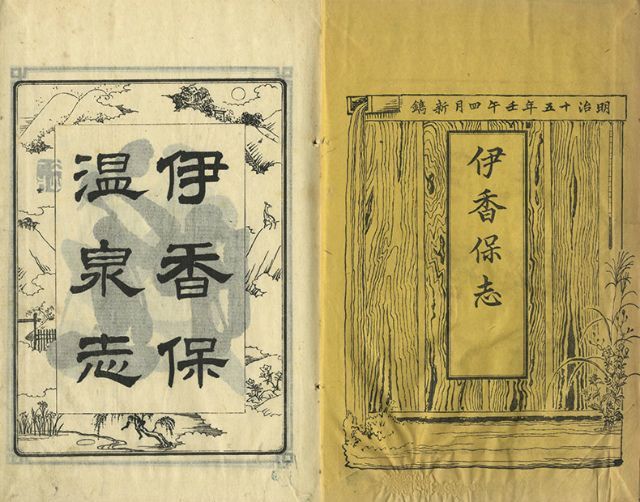 明治十五年壬午四月新鐫
伊香保志
伊香保
温泉志